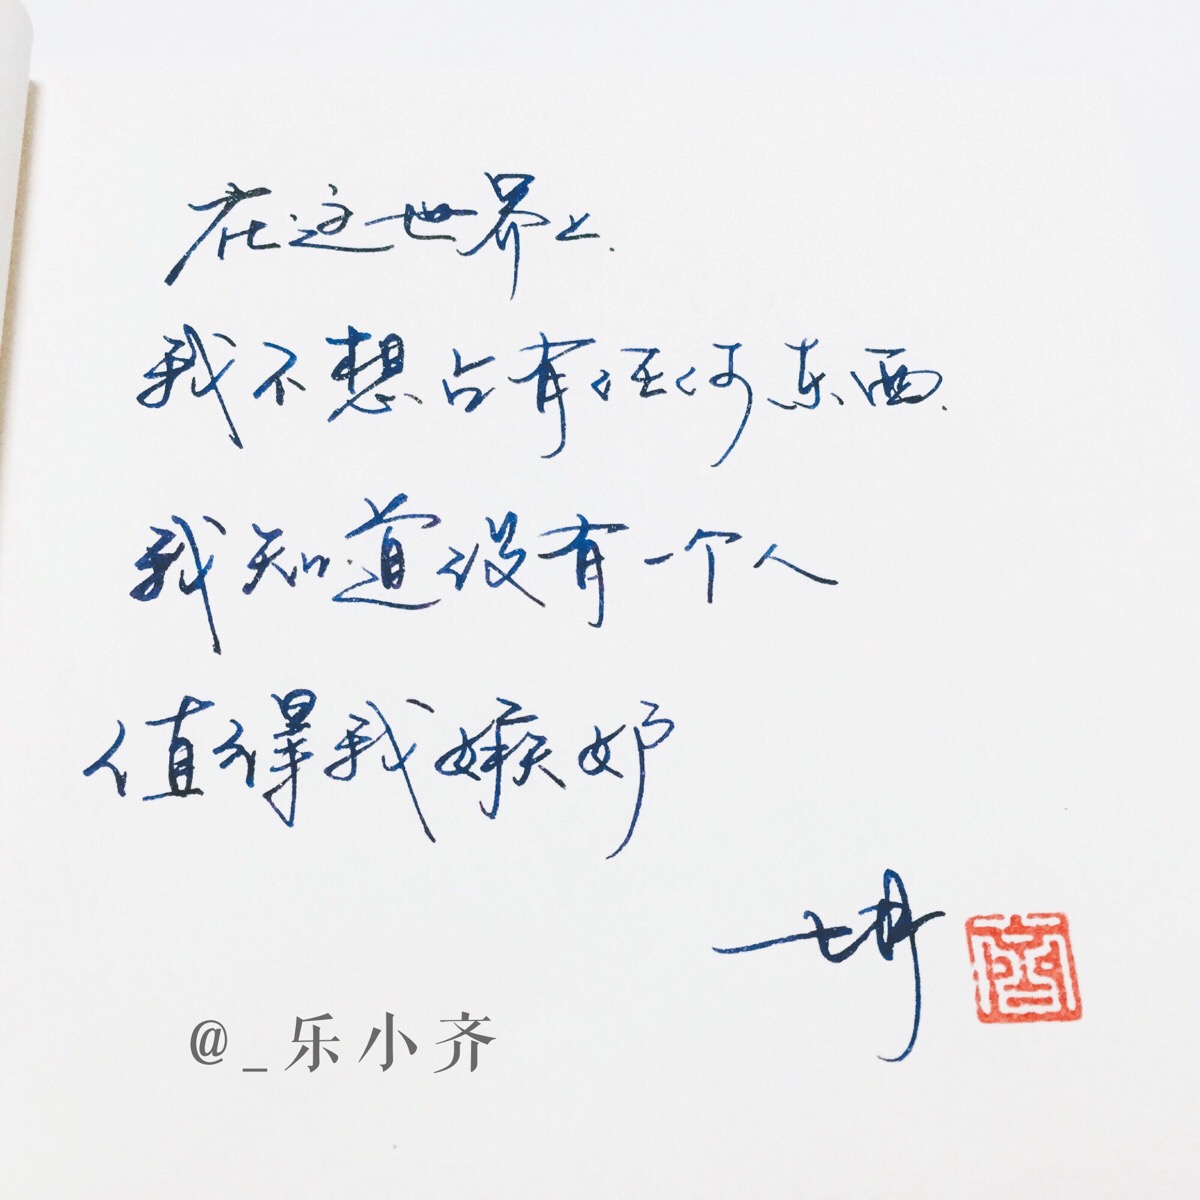 在这世界上.
我不想占有任何东西.
我知道没有一个人
值得我嫉妒
@_乐小齐